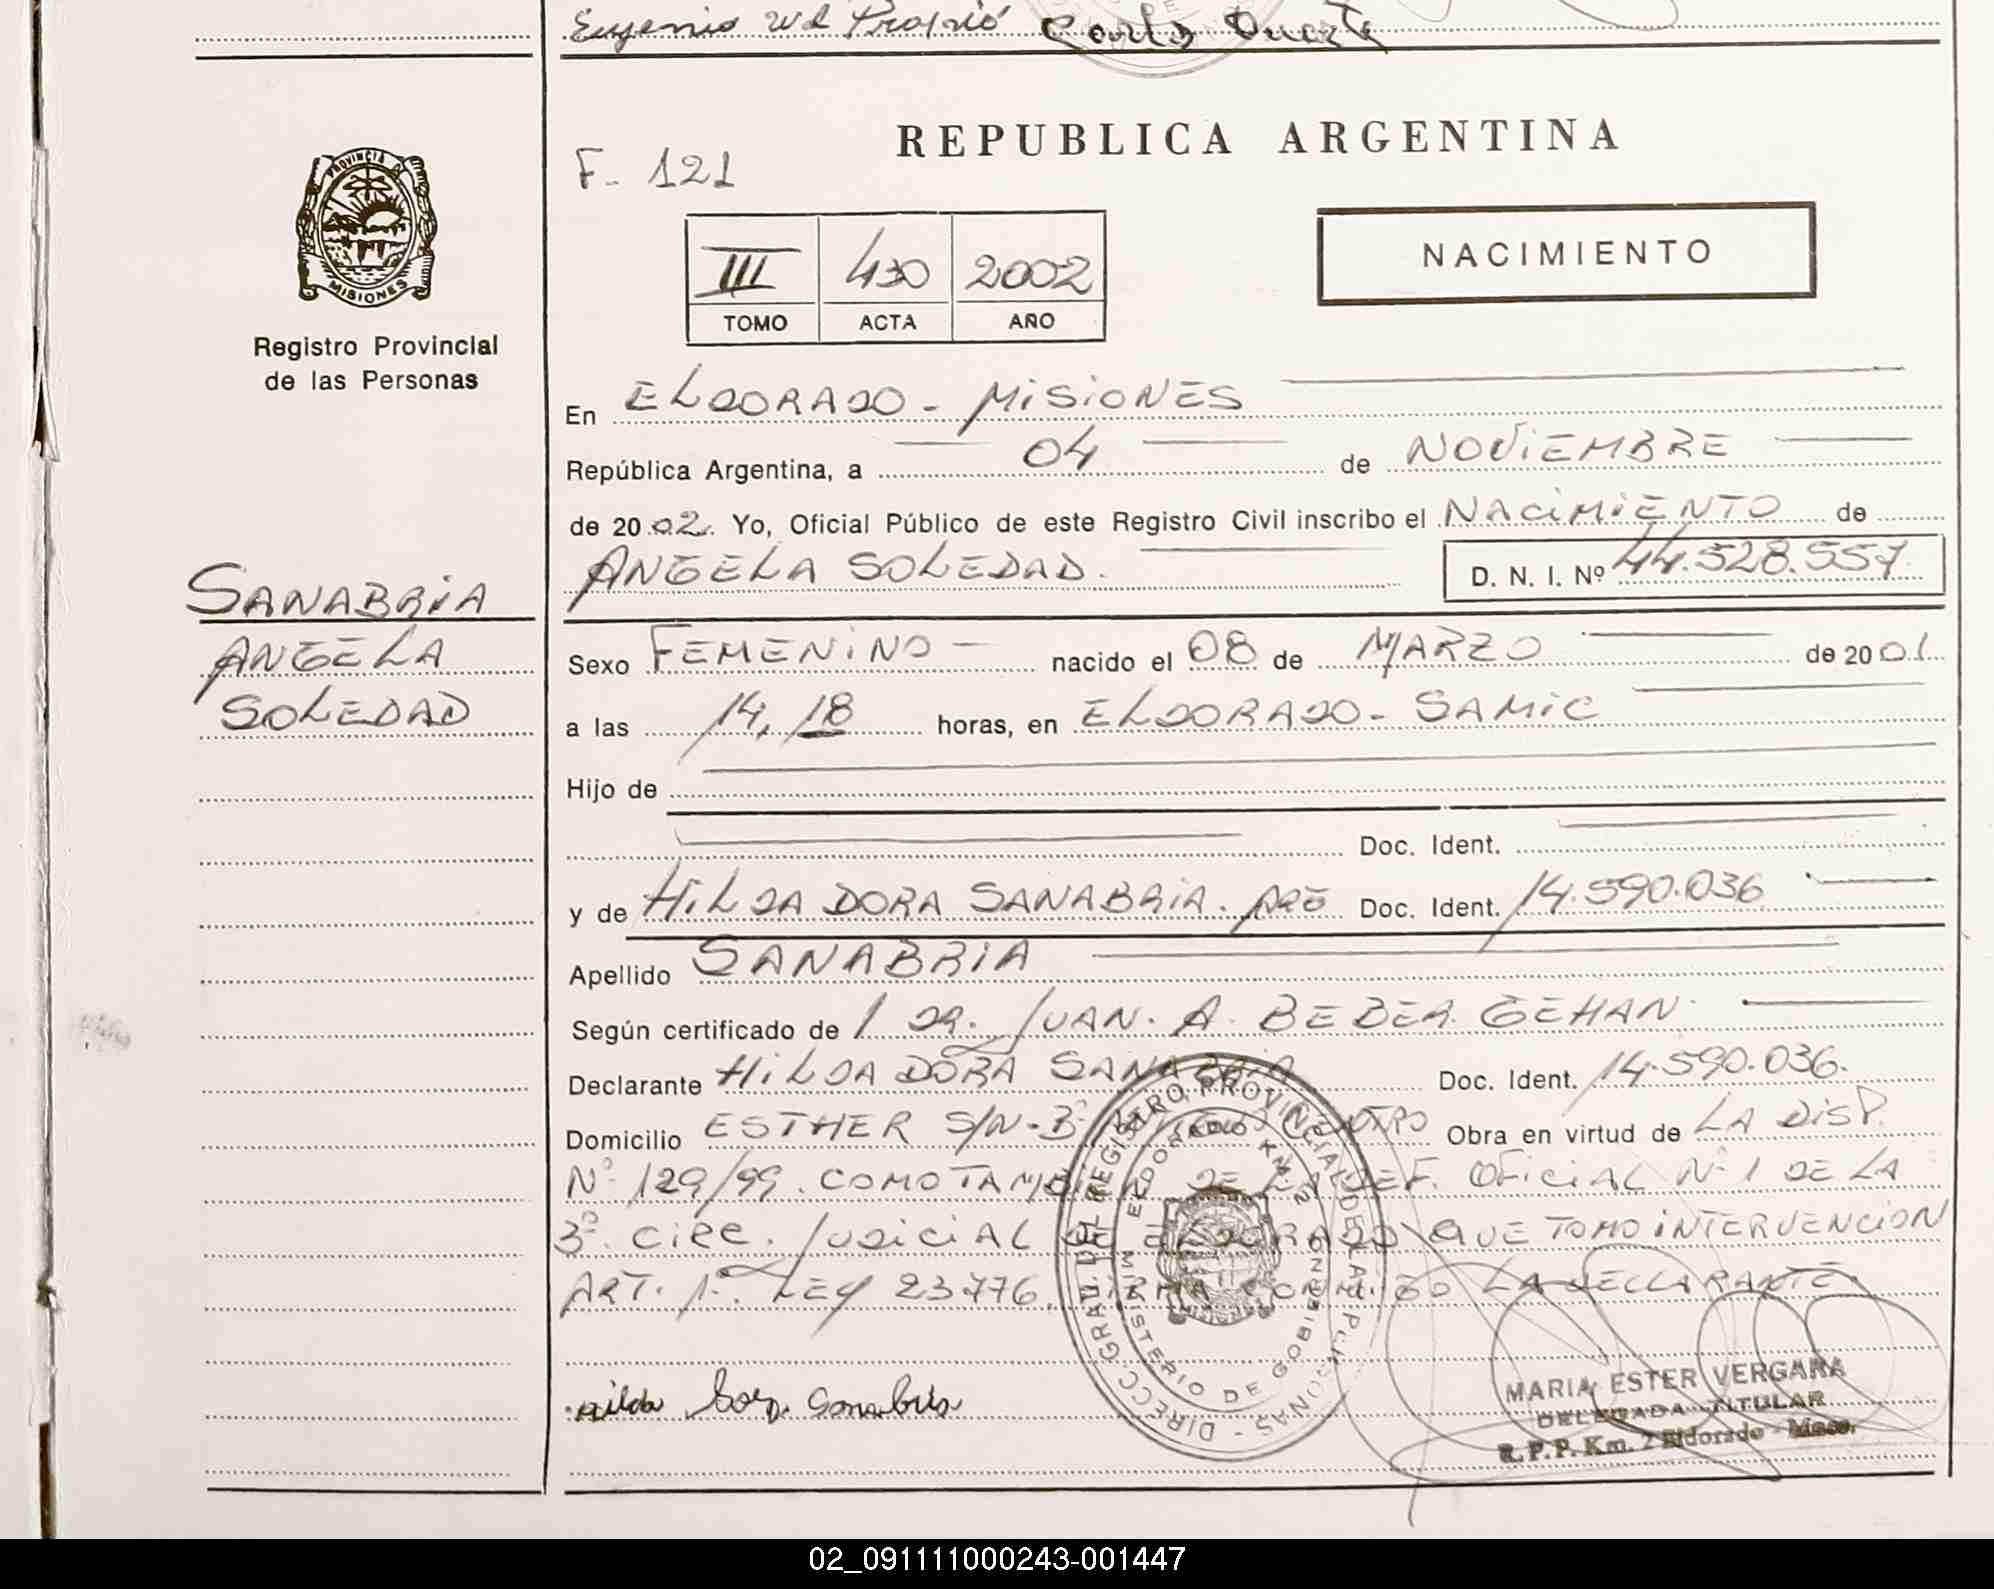 Eugenio Carlos Duarte
F. 121
REPUBLICA ARGENTINA
PROVINCIA D
MISIONES
Registro Provincial
de las Personas
III 430 2002
TOMO ACTA AÑO
NACIMIENTO
En ELDORADO - MISIONES
República Argentina, a 04 de NOVIEMBRE
de 2002. Yo, Oficial Público de este Registro Civil inscribo el NACIMIENTO de
ANGELA SOLEDAD. D. N. I. Nº 44.528.557
SANABRIA
ANGELA
SOLEDAD
Sexo FEMENINO - nacido el 08 de MARZO de 2001
a las 14,18 horas, en ELDORADO - SAMIC
Hijo de
Doc. Ident.
y de HILDA DORA SANABRIA. Doc. Ident. 14.590.036
Apellido SANABRIA
Según certificado de / DR. JUAN. A. BEBER GEHAN
Declarante HILDA DORA SANABRIA Doc. Ident. 14.590.036.
Domicilio ESTHER S/N - 3º CENTRO Obra en virtud de LA DISP.
Nº 129/99. COMO TAMBIEN DE LA DEF. OFICIAL Nº 1 DE LA
3º. CIRC. JUDICIAL DE ELDORADO QUE TOMO INTERVENCION
ART. 1º. LEY 23776. FIRMA CONMIGO LA DECLARANTE.
Hilda Dora Sanabria
DIRECC. GRAL. DEL REGISTRO PROVINCIAL DE LAS PERSONAS -
ELDORADO KM. 2
MINISTERIO DE GOBIERNO
MARIA ESTER VERGARA
DELEGADA TITULAR
R.P.P. Km. 2 Eldorado - Mnes.
02_091111000243-001447